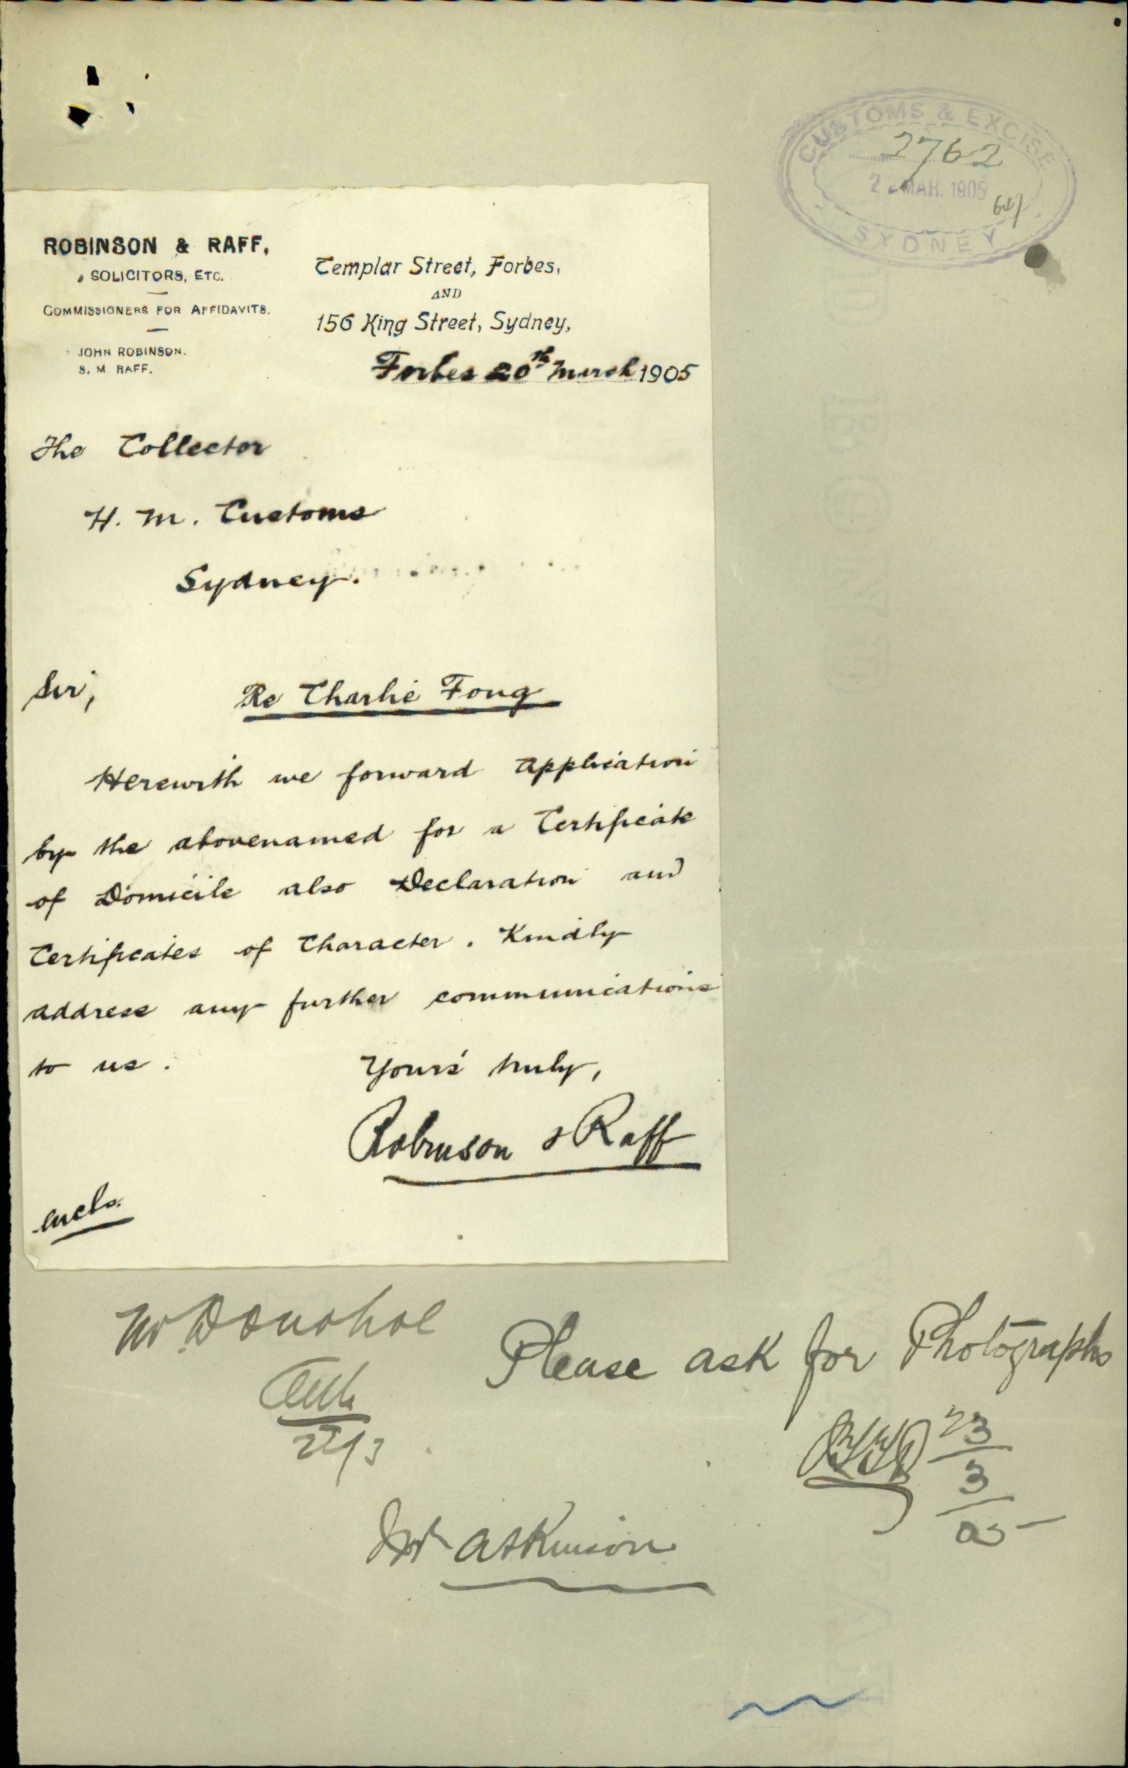 CUSTOMS & EXCISE
2762
MAR. 1905
SYDNEY
ROBINSON & RAFF,
SOLICITORS, ETC.
COMMISSIONERS FOR AFFIDAVITS.
JOHN ROBINSON.
S. M. RAFF.
Templar Street, Forbes,
AND
156 King Street, Sydney,
Forbes 20th March 1905
The Collector
H. M. Customs
Sydney.
Sir,
Re Charlie Fong
Herewith we forward Application
by the abovenamed for a Certificate
of Domicile also Declaration and
Certificates of Character. Kindly
address any further communications
to us.
Yours truly,
Robinson & Raff
encls.
Mr Donohoe
22/3
Please ask for Photographs
23
3
05
Mr Atkinson